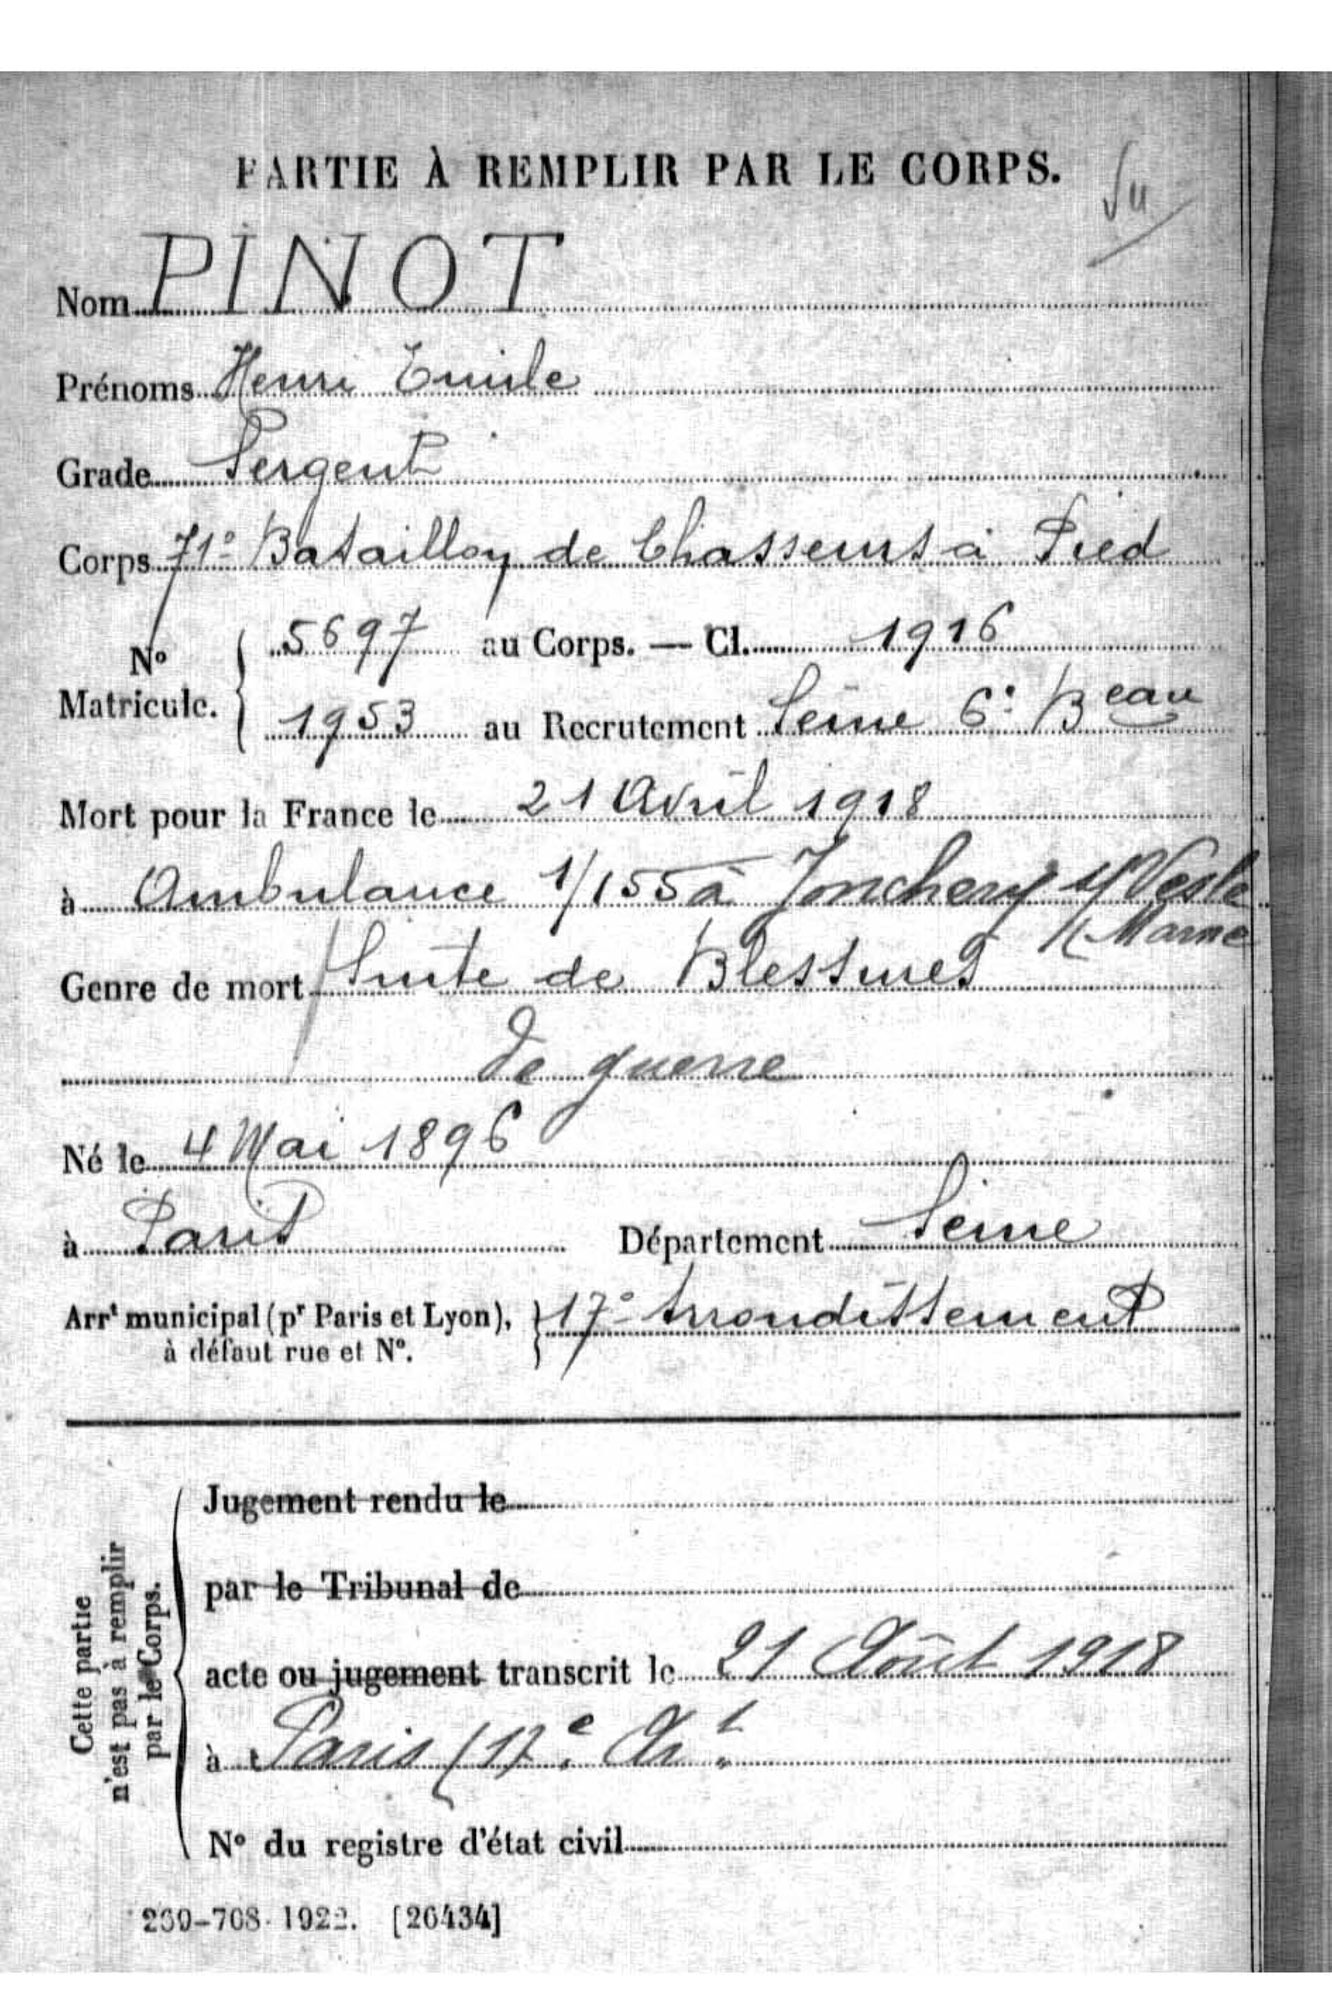 PARTIE À REMPLIR PAR LE CORPS.
Nom PINOT
Prénoms Henri Emile
Grade Sergent
Corps 71e Bataillon de Chasseurs à Pied
No Matricule. { 5697 au Corps. — Cl. 1916
1953 au Recrutement Seine 6e Beau
Mort pour la France le 21 Avril 1918
à Ambulance 1/155 à Jonchery s/ Vesle
(Marne
Genre de mort Suite de Blessures
de guerre
Né le 4 Mai 1896
à Paris Département Seine
Arrt municipal (pr Paris et Lyon), } 17e Arrondissement
à défaut rue et No.
Cette partie
n'est pas à remplir
par le Corps.
Jugement rendu le
par le Tribunal de
acte ou jugement transcrit le 21 Août 1918
à Paris (17e Art
No du registre d'état civil
260-708. 1922. [26434]